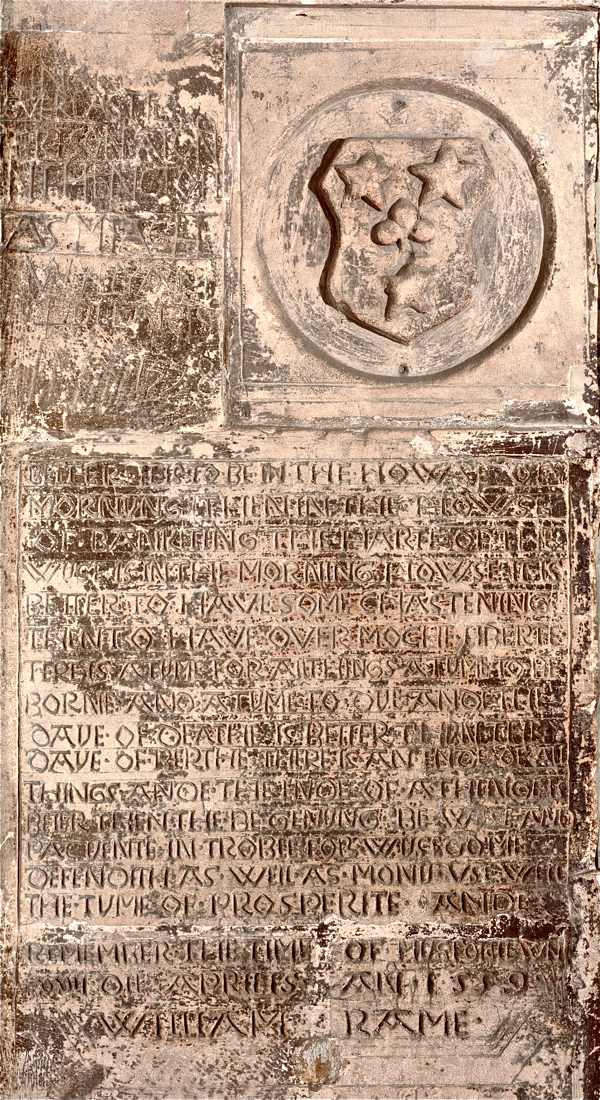 BETTER IT IS TO BE IN THE HOWSE OF
MORNUNG THEN IN THE HOWSE
OF BANKETING THE HARTE OF THE
WUSE IS IN THE MORNING HOWSE IT IS
BETTER TO HAVE SOME CHASTENING
THEN TO HAVE OVER MOCHE LIBERTE
TERE IS A TUME FOR AL THINGS A TUME TO BE
BORNE AND A TUME TO DUE AND THE
DAUE OF DEATHE IS BETTER THEN THE
DAUE OF BERTHE THERE IS AN ENDE OF ALL
THINGS ANDE THE ENDE OF A THENGE IS
BETER THEN THE BEGENUNG BE WUSE AND
PACUENTE IN TROBLE FOR WUSDOME
DEFENDITHE AS WELL AS MONU USE WELL
THE TUME OF PROSPERITE ANDE
REMEMBER THE TIME OF MISFORTEWN
DIE APRILIS AN 1559
WILLIAM RAME